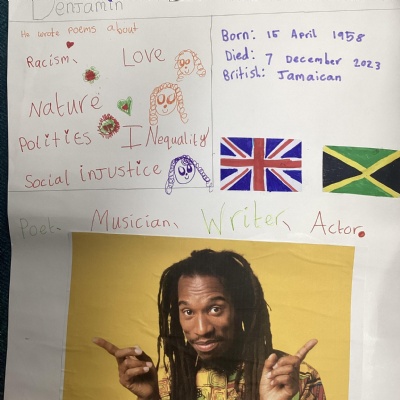 Benjamin
He wrote poems about
Racism,
Love
Nature
Politics
Inequality
Social injustice
Born: 15 April 1958
Died: 7 December 2023
British: Jamaican
Poet, Musician, Writer, Actor.